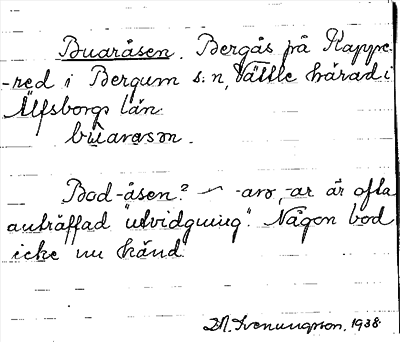 Buaråsen. Bergås på Kappe-
-red i Bergum s:n, Vättle härad i
Älfsborgs län.
bûarəsən.
Bod-åsen? — -arə, -ar är ofta
anträffad "utvidgning". Någon bod
icke nu känd.
D.N. Svenungson. 1938.